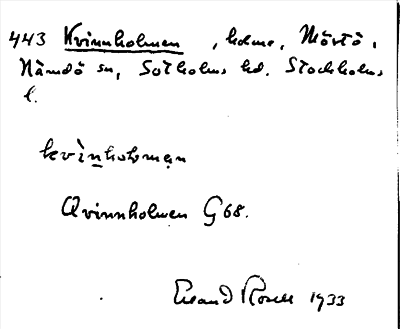 443 Kvinnholmen, holme, Mörtö,
Nämdö sn, Sotholms hd. Stockholms
l.
kvìnholmạn
Qvinnholmen G68.
Erland Rosell 1933